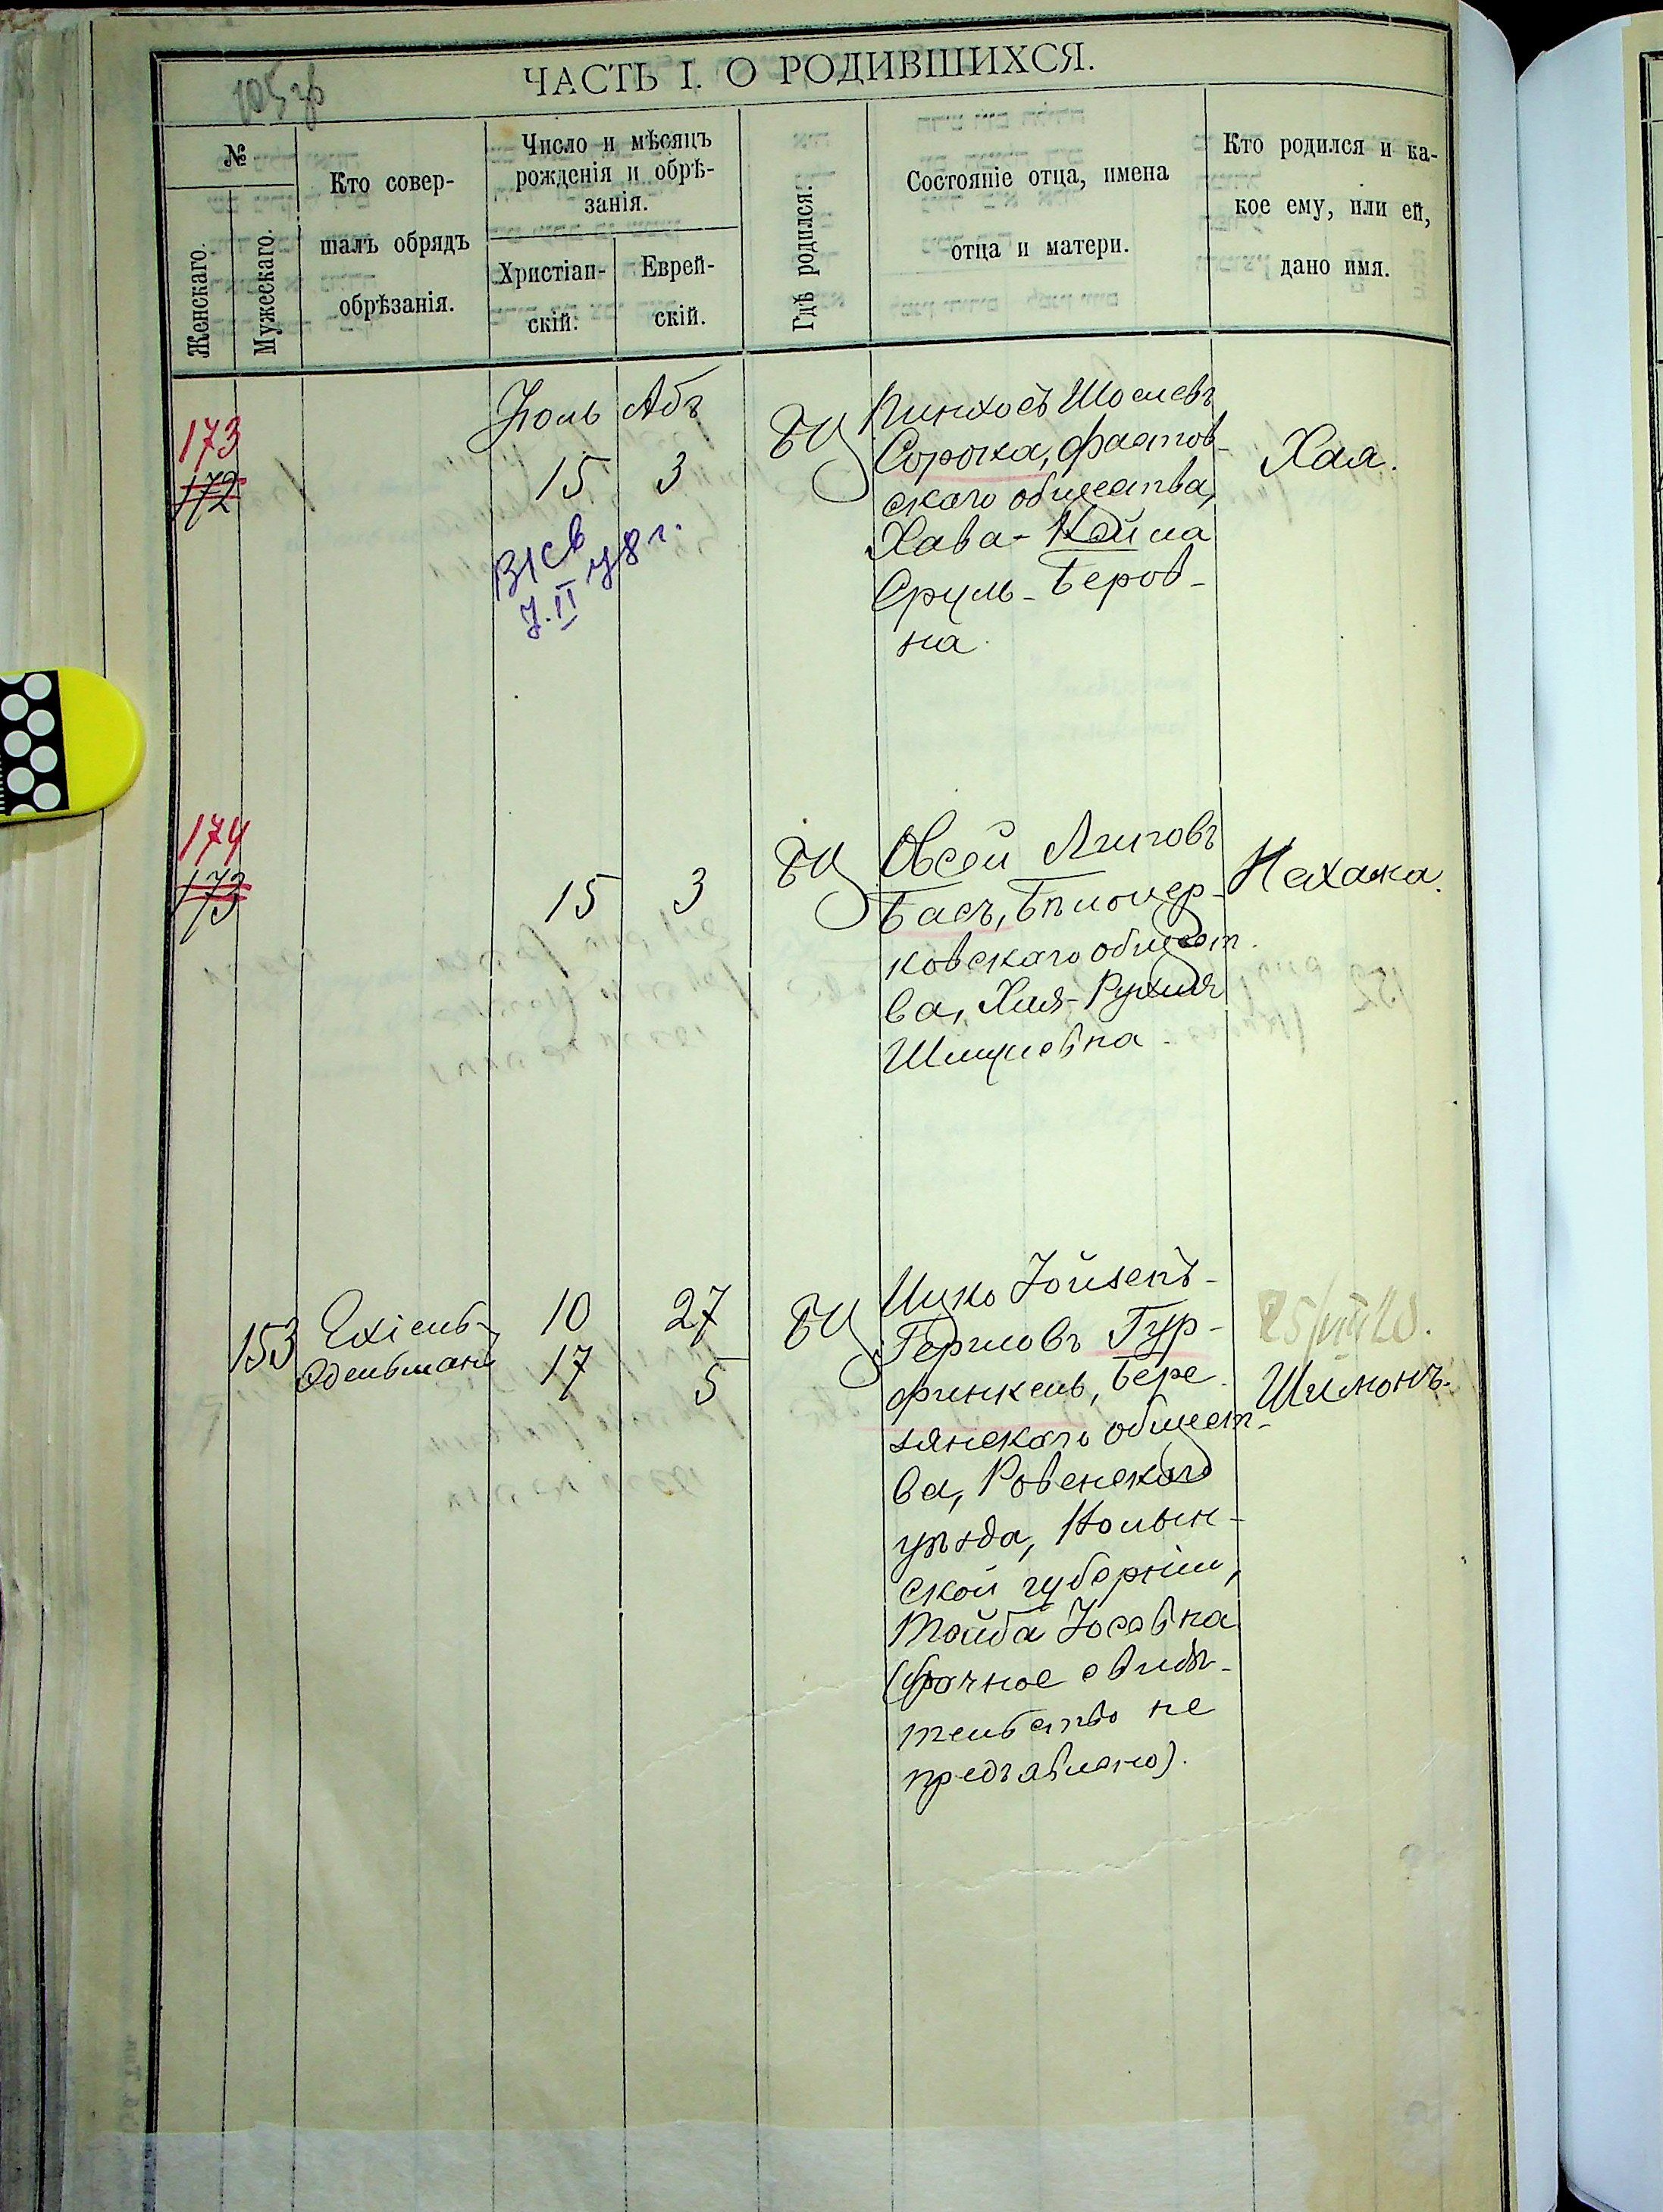 105 зв
ЧАСТЬ I. О РОДИВШИХСЯ.
№
Женскаго.
Мужескаго.
Кто совер-
шалъ обрядъ
обрѣзанія.
Число и мѣсяцъ
рожденія и обрѣ-
занія.
Христіан-
скій.
Еврей-
скій.
Гдѣ родился.
Состояніе отца, имена
отца и матери.
Кто родился и ка-
кое ему, или ей,
дано имя.
173
172
Іюль Абъ
15 3
БЦ
Пинхосъ Шоелевъ
Сорока, фастов-
скаго общества,
Хава-Кейла
Сруль-Беров-
на
Хая.
7.II 78 г.
174
173
15 3
БЦ
Овсей
Басъ, Бѣлоцер-
ковскаго общест-
ва, Хая-Рухля
Шмулевна
Нехама.
153
Ехіель
Эдельманъ
10 27
17 5
БЦ
Ицко Іойзепъ-
Гершовъ Гур-
финкель, Бере-
зянскаго общест-
ва, Ровенскаго
уѣзда, Волын-
ской губерніи,
Тойба Іосевна
(брачное свидѣ-
тельство не
предъявлено).
Шимонъ.